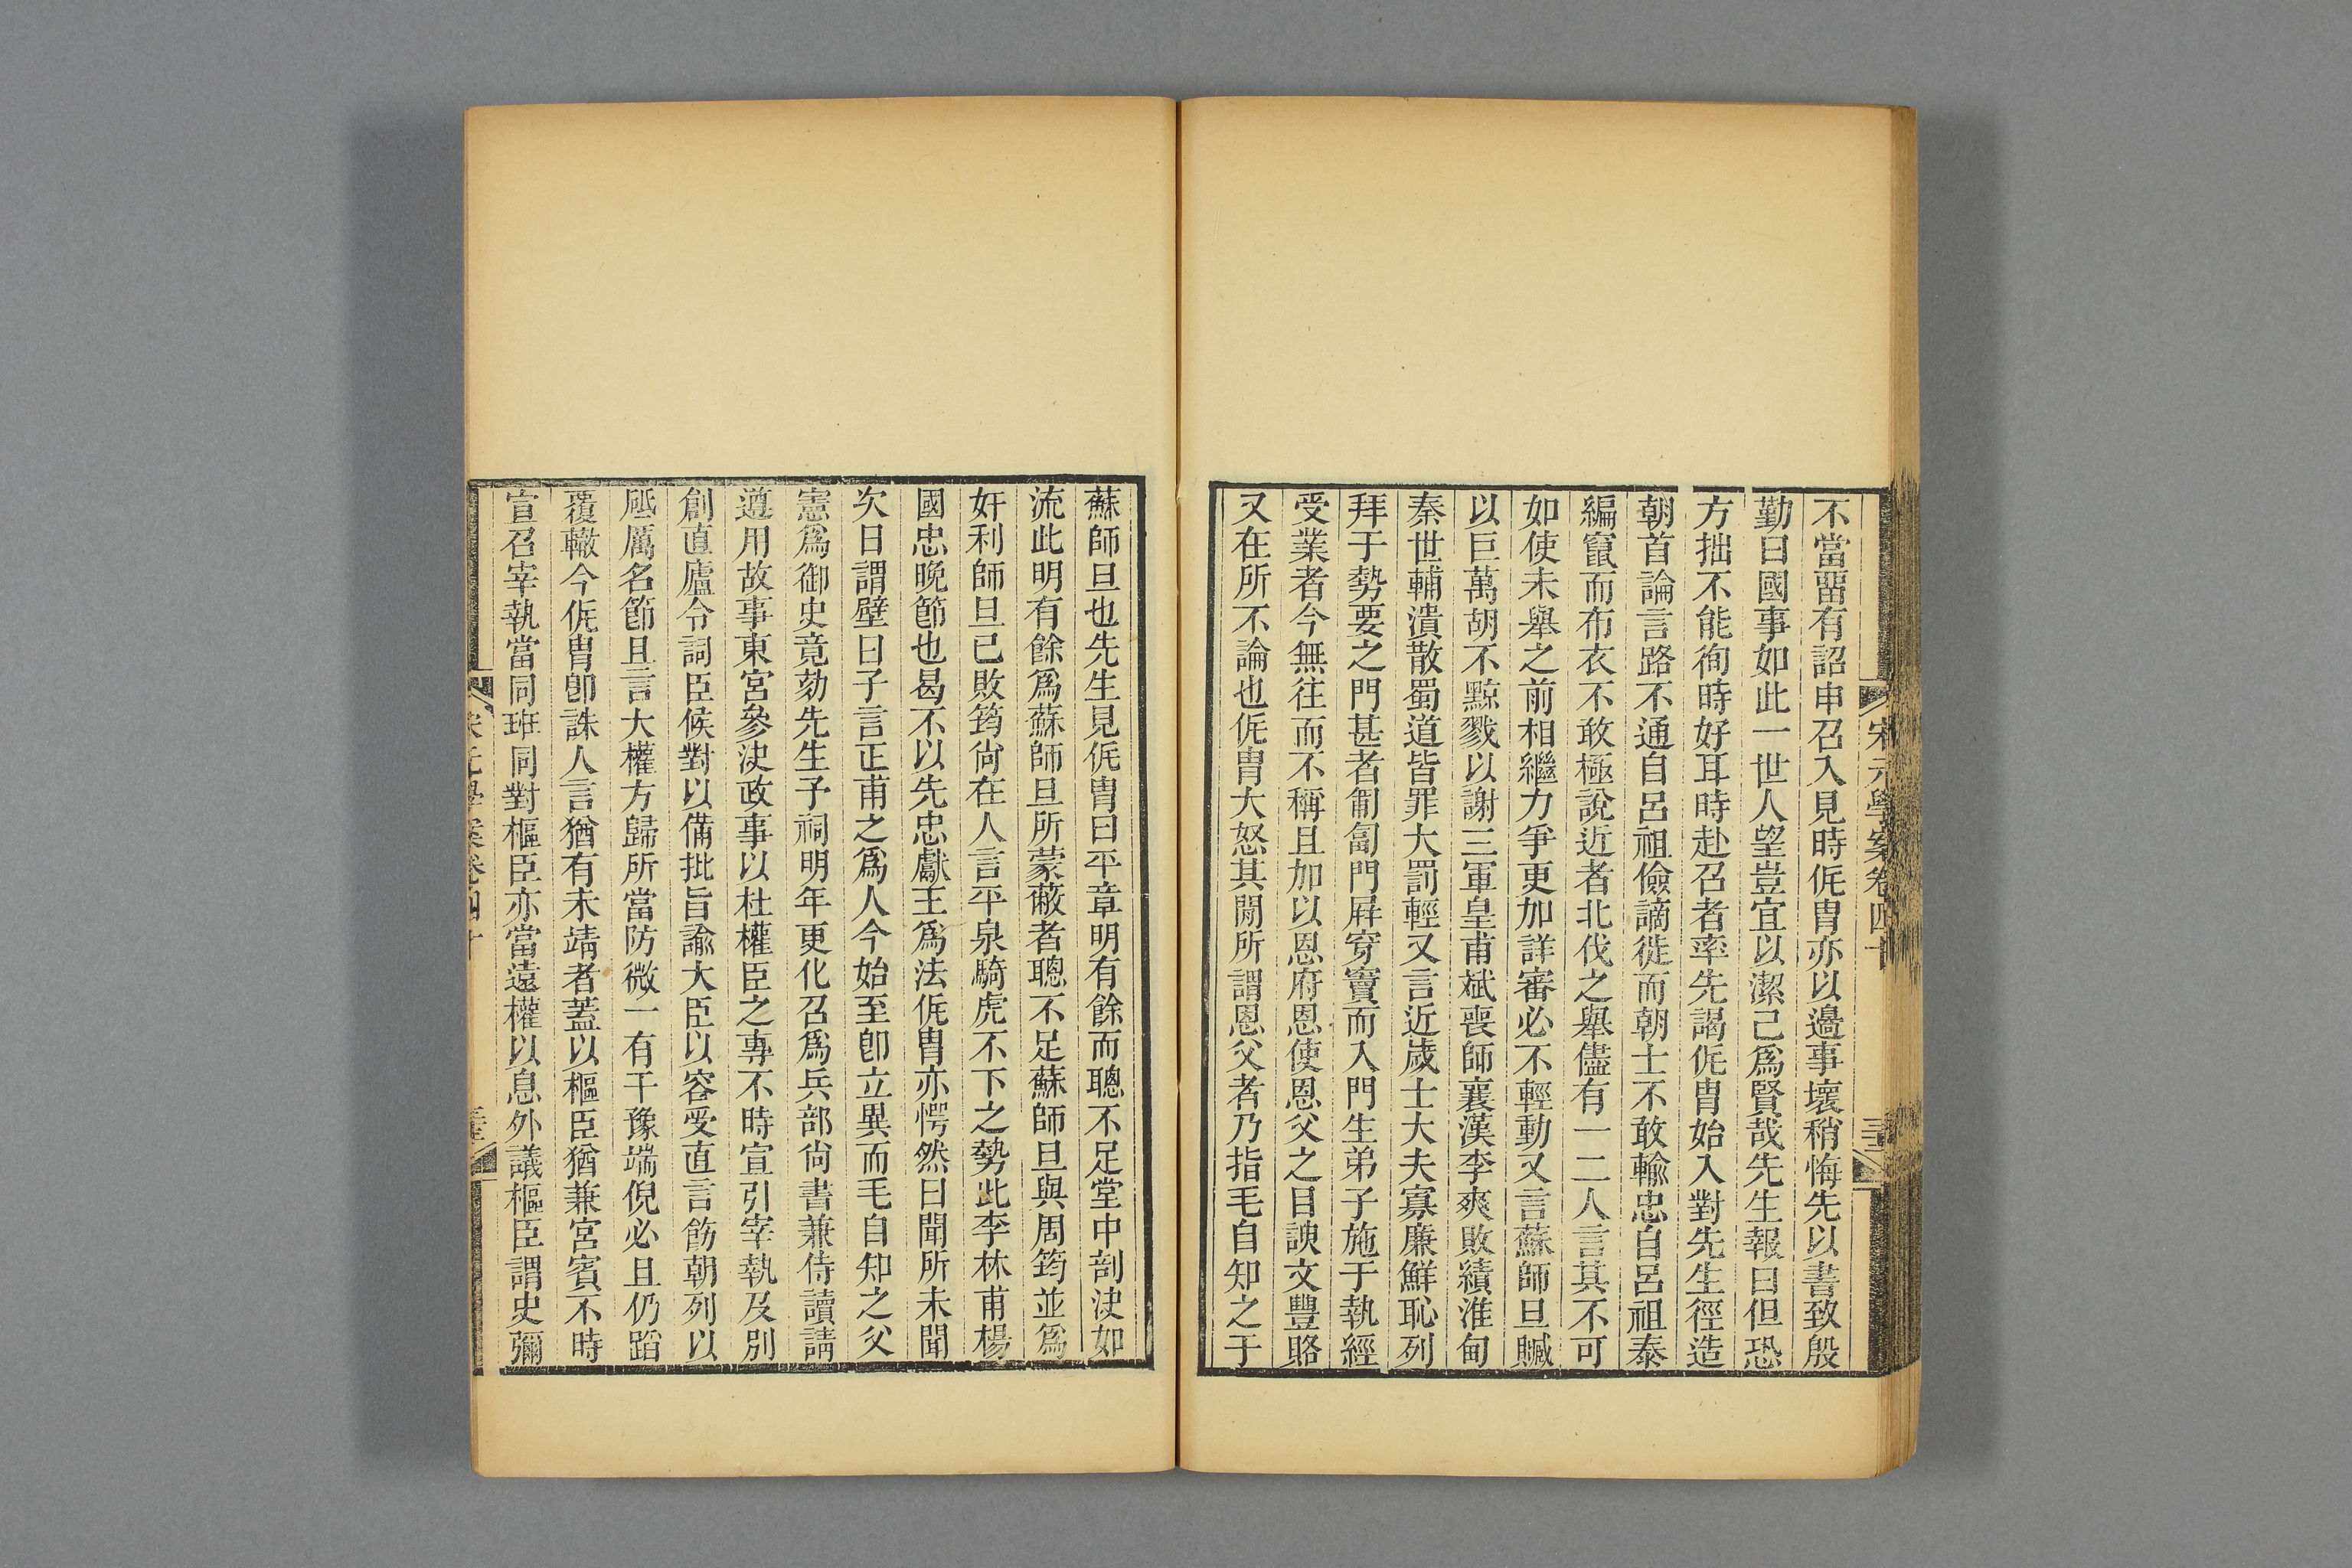 宋元學案卷四十
不當畱有詔申召入見時侂胄亦以邊事壞稍悔先以書致殷
勤曰國事如此一世人望豈宜以潔己爲賢哉先生報曰但恐
方拙不能徇時好耳時赴召者率先謁侂胄始入對先生徑造
朝首論言路不通自呂祖儉謫徙而朝士不敢輸忠自呂祖泰
編竄而布衣不敢極說近者北伐之舉儘有一二人言其不可
如使未舉之前相繼力爭更加詳審必不輕動又言蘇師旦贓
以巨萬胡不黥戮以謝三軍皇甫斌喪師襄漢李爽敗績淮甸
秦世輔潰散蜀道皆罪大罰輕又言近歲士大夫寡廉鮮恥列
拜于勢要之門甚者匍匐門屛穿竇而入門生弟子施于執經
受業者今無往而不稱且加以恩府恩使恩父之目諛文豐賂
又在所不論也侂胄大怒其閒所謂恩父者乃指毛自知之于
蘇師旦也先生見侂胄曰平章明有餘而聰不足堂中剖決如
流此明有餘爲蘇師旦所蒙蔽者聰不足蘇師旦與周筠並爲
奸利師旦已敗筠尙在人言平泉騎虎不下之勢此李林甫楊
國忠晚節也曷不以先忠獻王爲法侂胄亦愕然曰聞所未聞
次日謂壁曰子言正甫之爲人今始至卽立異而毛自知之父
憲爲御史竟劾先生予祠明年更化召爲兵部尙書兼侍讀請
遵用故事東宮參決政事以杜權臣之專不時宣引宰執及別
創直廬令詞臣候對以備批旨諭大臣以容受直言飭朝列以
砥厲名節且言大權方歸所當防微一有干豫端倪必且仍蹈
覆轍今侂胄卽誅人言猶有未靖者蓋以樞臣猶兼宮賓不時
宣召宰執當同班同對樞臣亦當遠權以息外議樞臣謂史彌
宋元學案卷四十